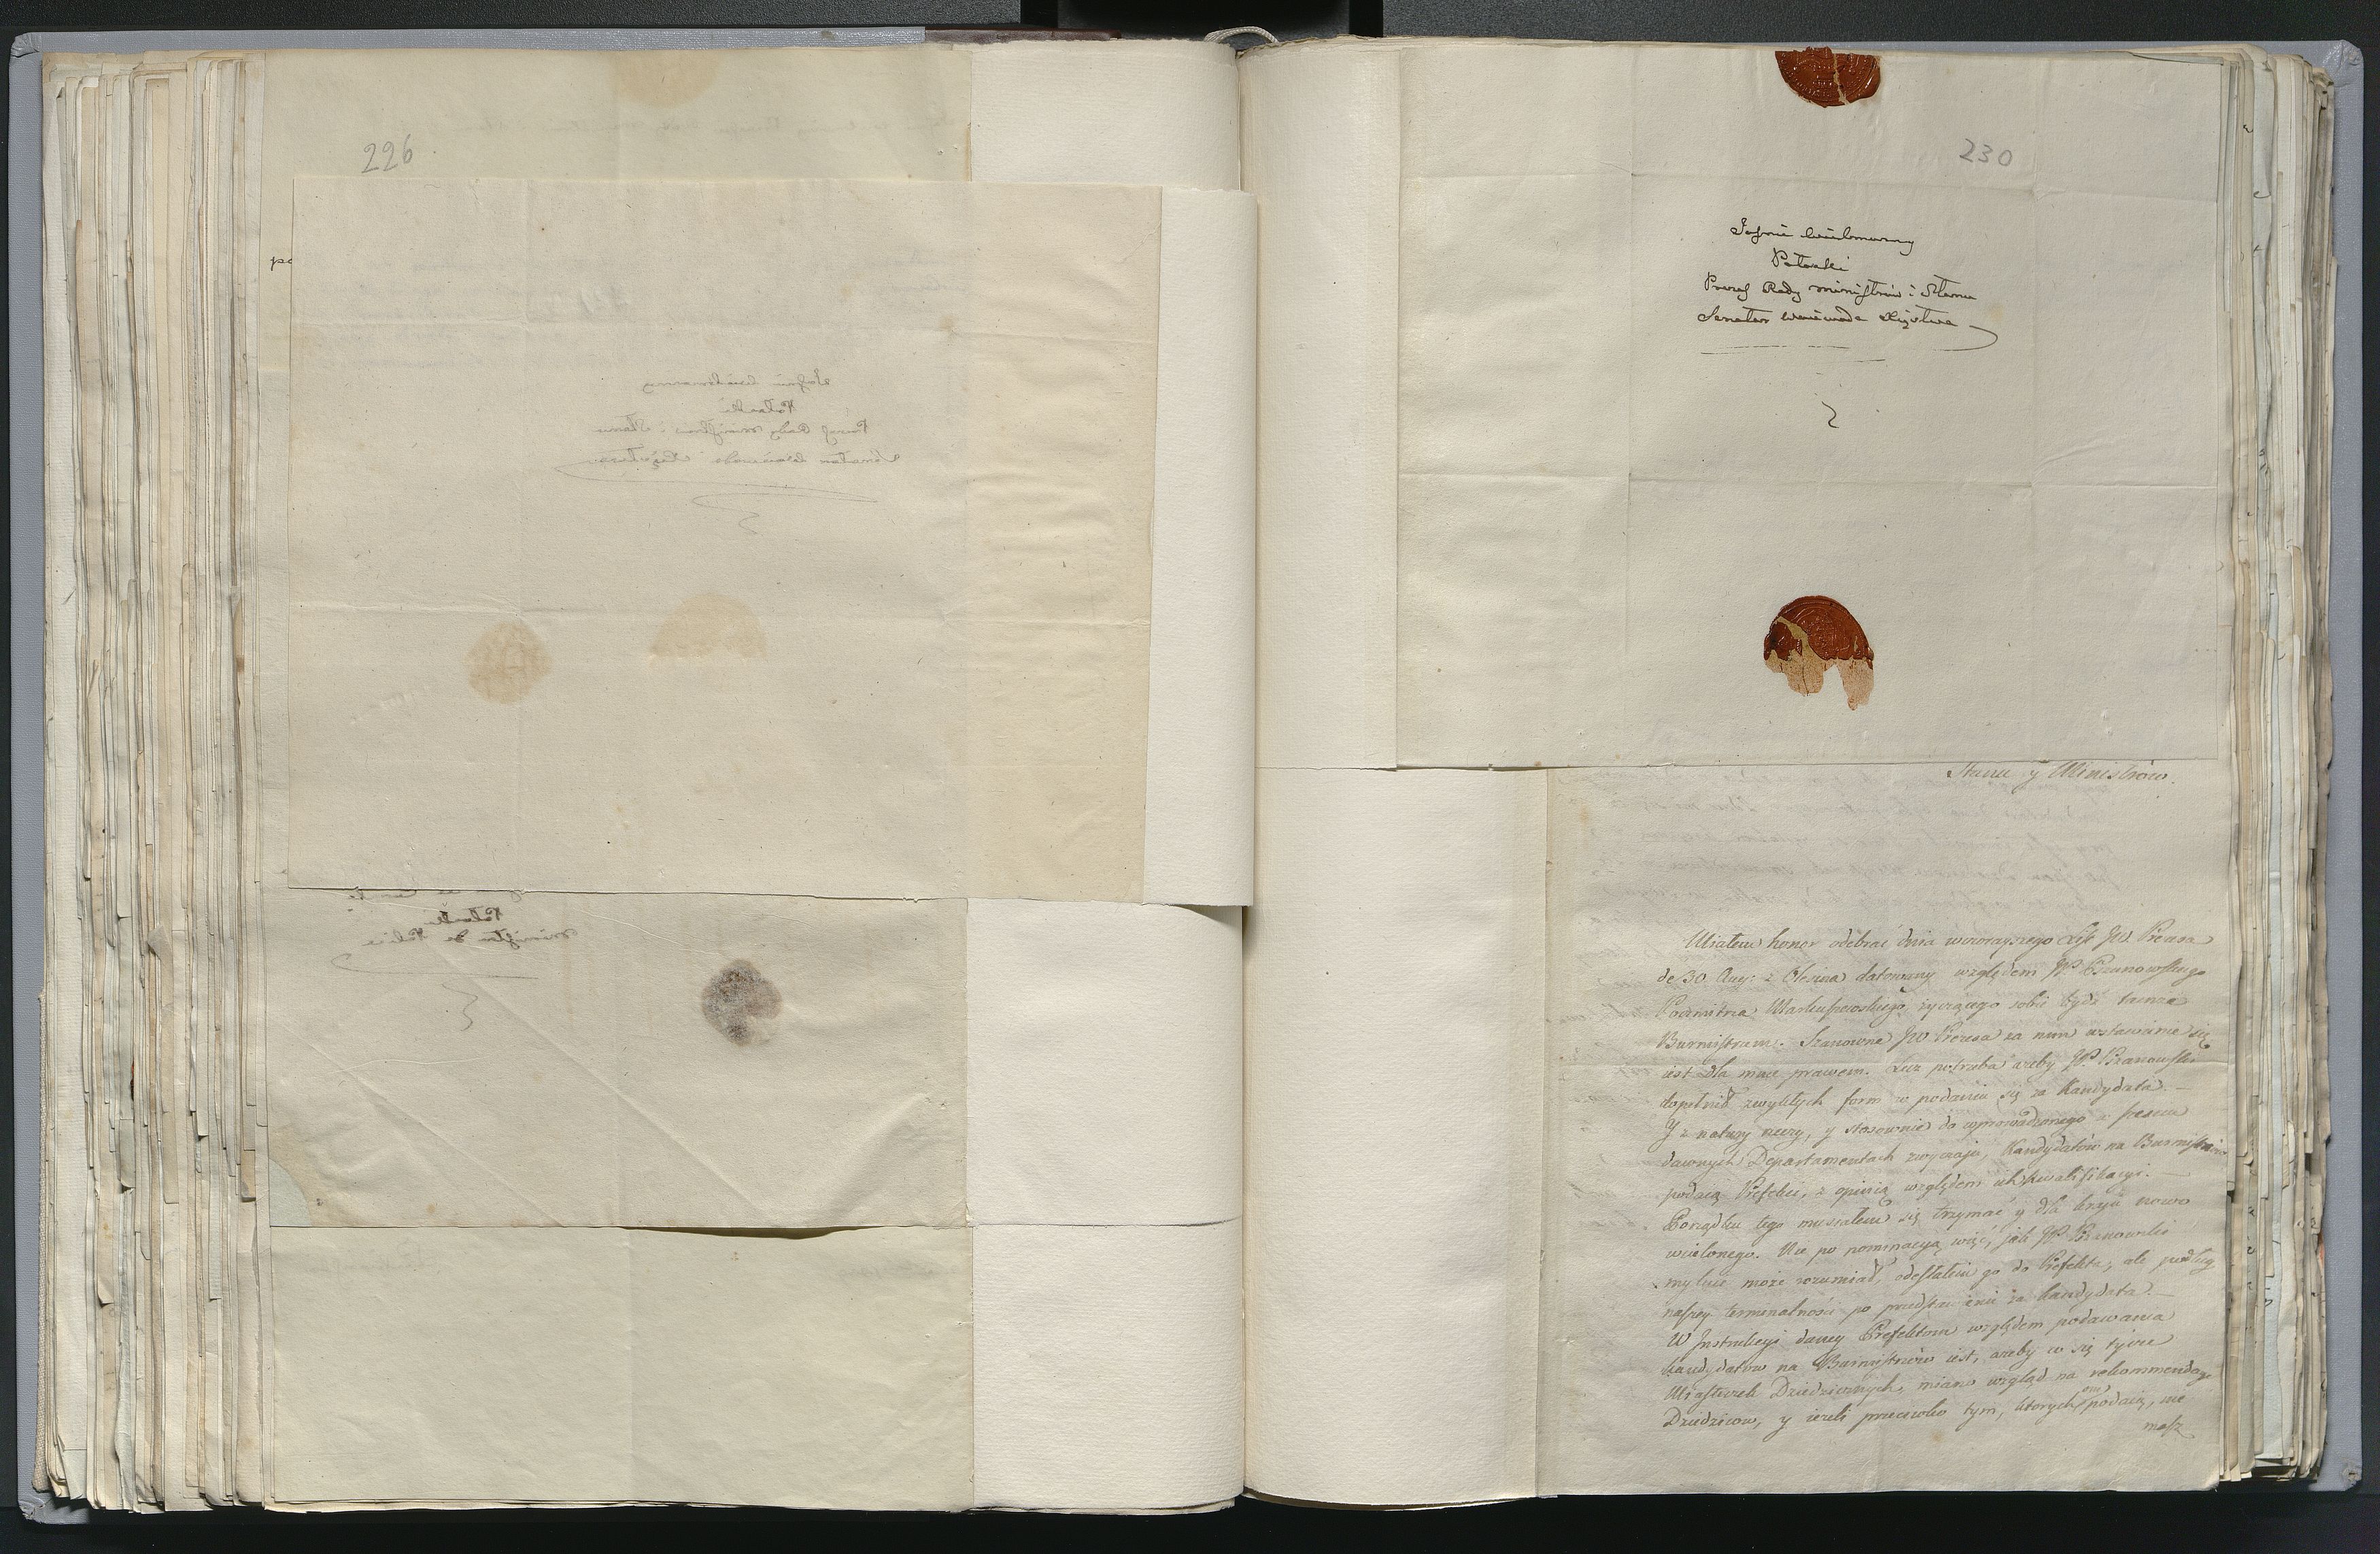 226
po
230
Jaśnie Wielmożny
Potocki
Prezes Rady Ministrów i Stanu
Senator Woiewoda Xięstwa
Stanu y Ministrów.
Miałem honor odebrać dnia wczorayszego List JW. Prezesa
de 30 Aug: z Olesina datowany względem JP.
Pocztmistrza Markuszewskiego, życzącego sobie bydź tamże
Burmistrzem. Szanowne JW Prezesa za nim wstawienie się
iest dla mnie prawem. Lecz potrzeba ażeby JP.
dopełnił zwykłych form w podaniu się za Kandydata. —
Y z natury rzeczy, y stosownie do wprowadzonego w sześciu
dawnych Departamentach zwyczaju, Kandydatów na Burmistrzów
podaią Prefekci, z opinią względem ich kwalifikacyi. —
Porządku tego musiałem się trzymać y dla kraju nowo
wcielonego. Nie po nominacyą więc, jak JP
mylnie może rozumiał, odesłałem go do Prefekta, ale podług
naszey terminalności po przedstawienie za kandydata. —
W Instrukcyi daney Prefektom względem podawania
kandydatów na Burmistrzów iest, ażeby co się tycze
Miasteczek Dziedzicznych, miano wzgląd na rekommendacye
Dziedziców, y ieżeli przeciwko tym, których oni podaią, nie
masz